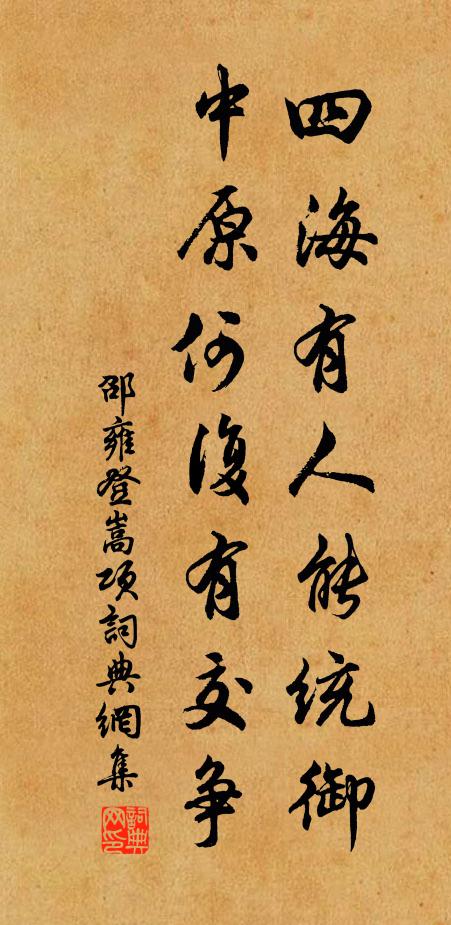 四海有人能统御
中原何復有交争
邵雍登嵩項詞典網集
詞典网印